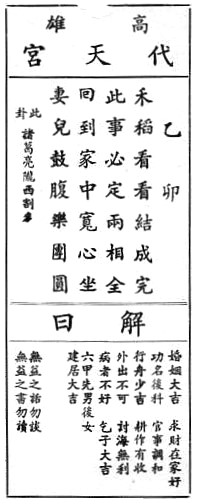 高雄
代天宮
乙卯
禾稻看看結成完
此事必定兩相全
回到家中寬心坐
妻兒鼓腹樂團圓
此卦 諸葛亮隴西割麥
解曰
婚姻大吉 求財在家好
功名後科 官事調和
行舟少吉 耕作有收
外出不可 討海無利
病者不好 乞子大吉
六甲先男後女
建居大吉
無益之話勿談
無益之書勿讀